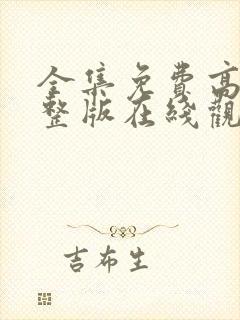 全集免费高
整版在线觀
吉布生